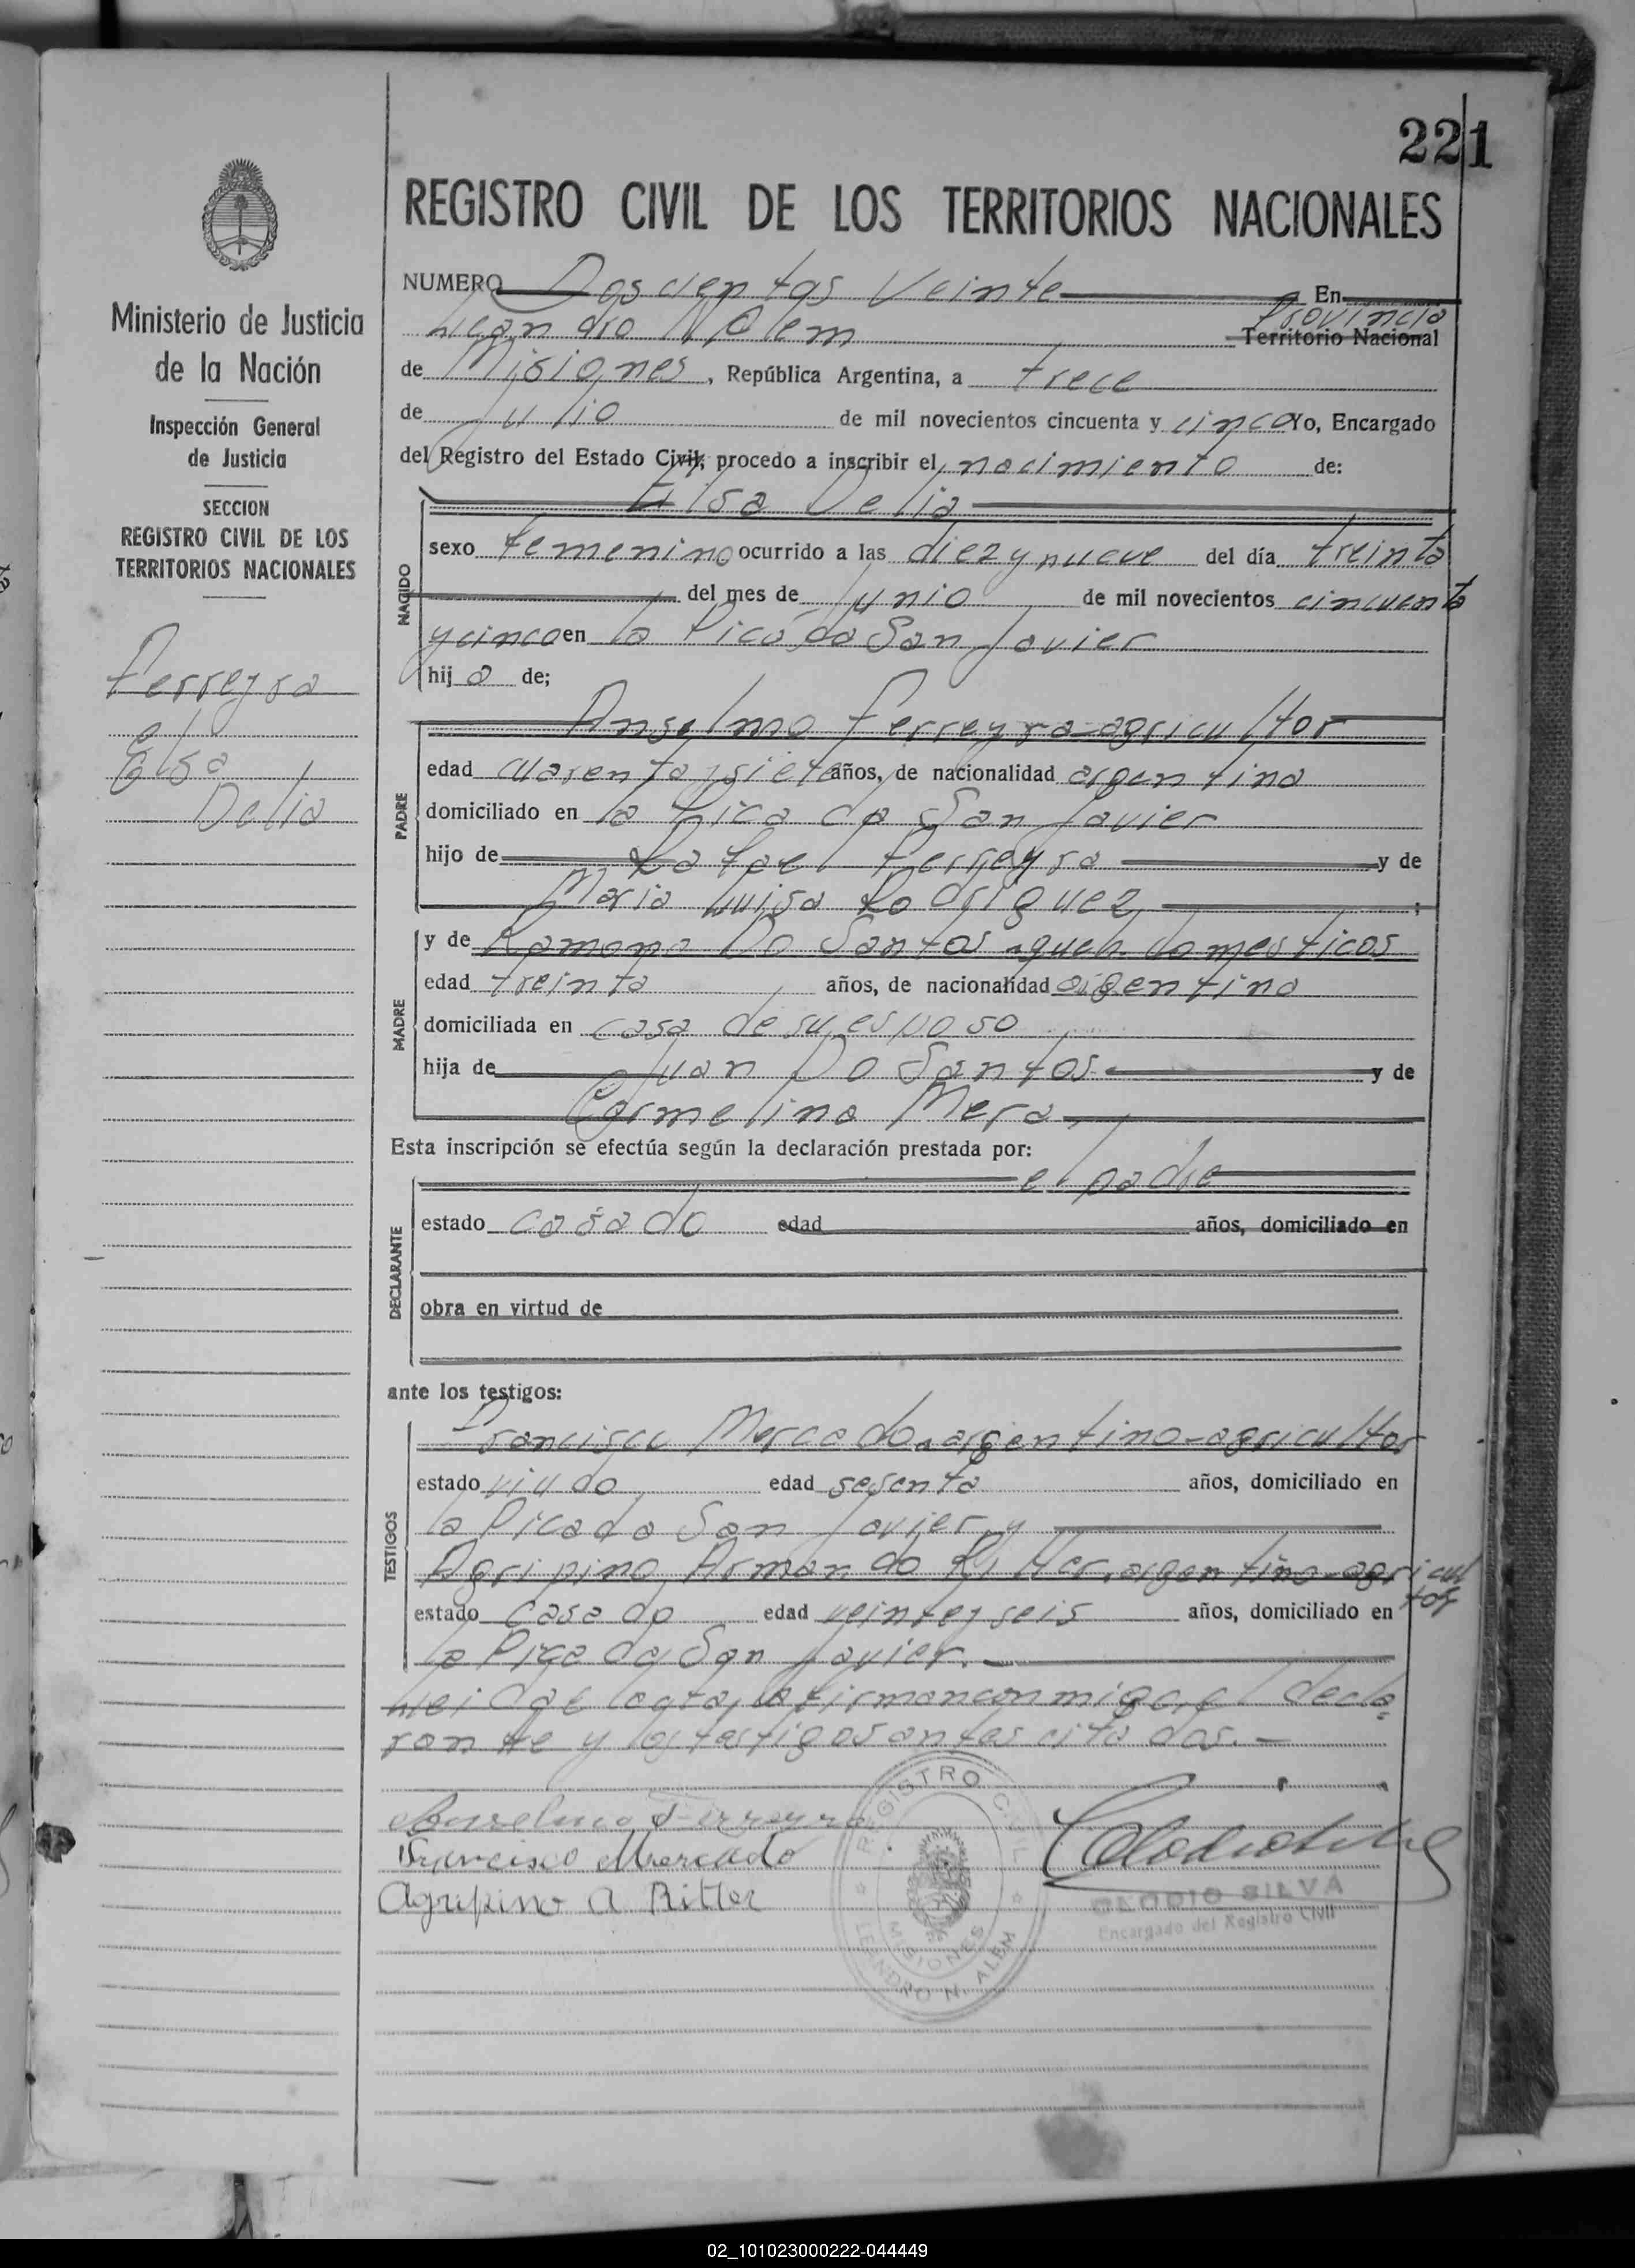 221
REGISTRO CIVIL DE LOS TERRITORIOS NACIONALES
Ministerio de Justicia
de la Nación
Inspección General
de Justicia
SECCION
REGISTRO CIVIL DE LOS
TERRITORIOS NACIONALES
Ferreyra
Elsa
Delia
NUMERO Doscientos Veinte En
Leandro N Alem Provincia
Territorio Nacional
de Misiones, República Argentina, a trece
de Julio de mil novecientos cincuenta y cinco Yo, Encargado
del Registro del Estado Civil, procedo a inscribir el nacimiento de:
NACIDO
Elsa Delia
sexo femenino ocurrido a las diez y nueve del día treinta
del mes de Junio de mil novecientos cincuenta
y cinco en la Picada San Javier
hij a de;
PADRE
Anselmo Ferreyra-agricultor
edad cuarenta y siete años, de nacionalidad argentina
domiciliado en la Picada San Javier
hijo de Rafael Ferreyra y de
Maria Luisa Rodriguez ;
MADRE
y de Ramona Do Santos - queh. domesticos
edad treinta años, de nacionalidad argentina
domiciliada en casa de su esposo
hija de Juan Do Santos- y de
Carmelina Mera
Esta inscripción se efectúa según la declaración prestada por:
DECLARANTE
el padre
estado casado edad años, domiciliado en
obra en virtud de
ante los testigos:
TESTIGOS
Francisco Mercado-argentino-agricultor
estado viudo edad sesenta años, domiciliado en
la Picada San Javier y
Agripino Armando Ritter, argentino-agricul
tor
estado casado edad veinte y seis años, domiciliado en
la Picada San Javier. -
Leida el acta, la firman conmigo, el decla
rante y los testigos antes citados. -
Anselmo Ferreyra
Francisco Mercado
Agripino A Ritter
REGISTRO CIVIL
MISIONES
LEANDRO N. ALEM
CLODIO SILVA
Encargado del Registro Civil
02_101023000222-044449